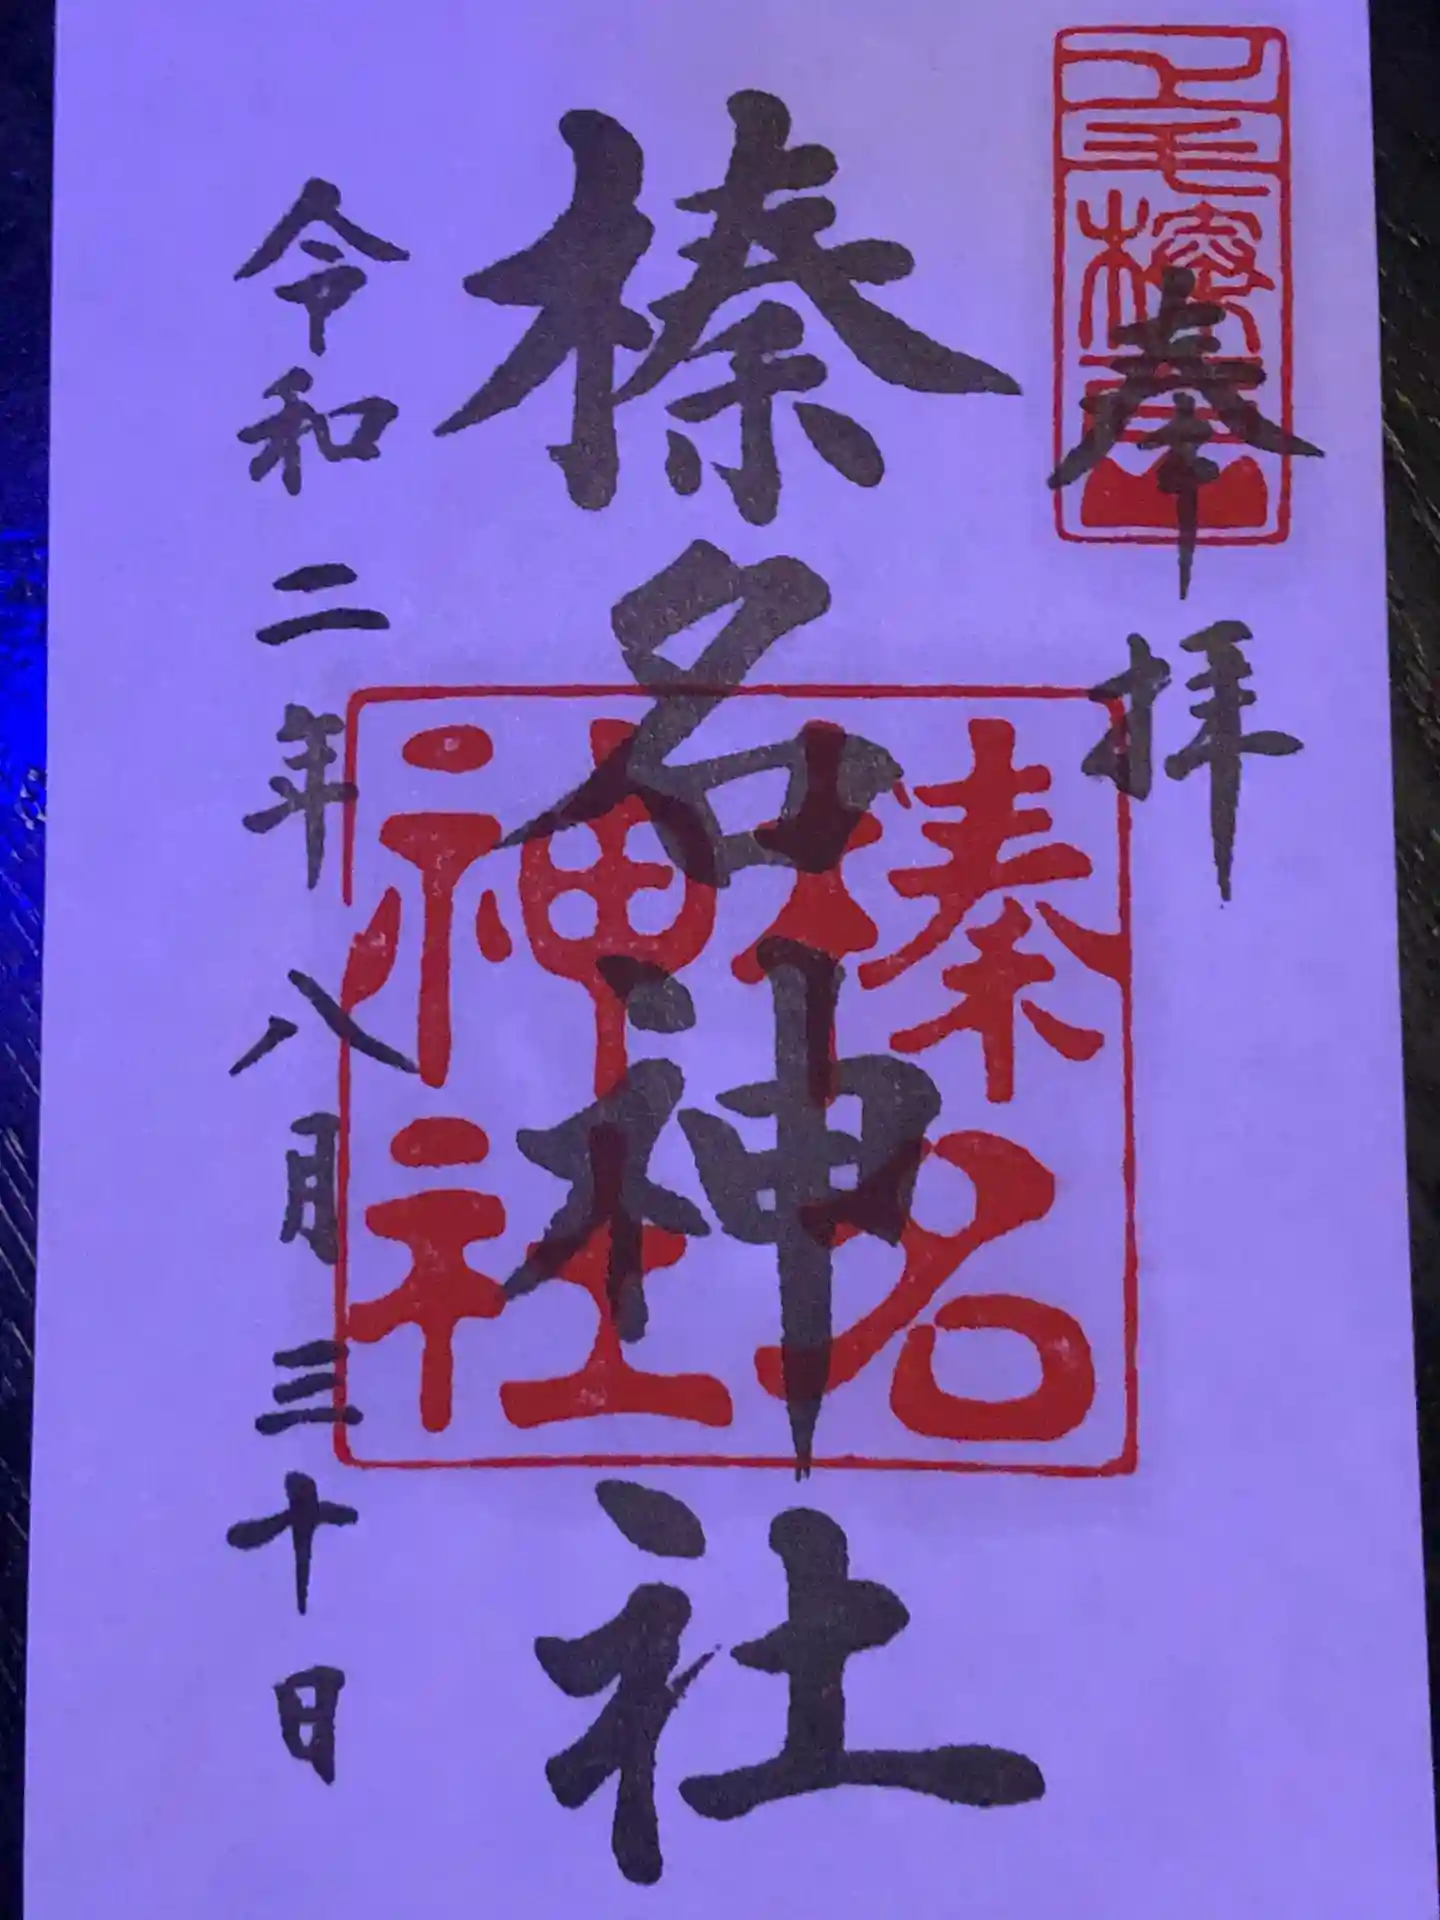 奉拝
榛名神社
榛名神社
令和二年八月三十日